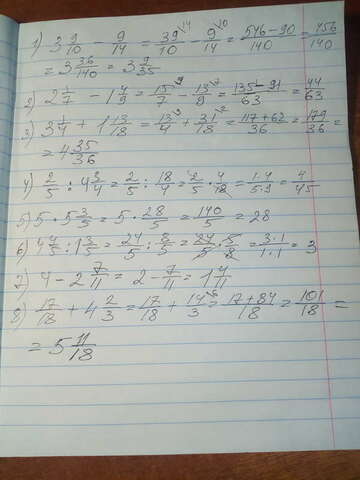 1) 3 9/10 - 9/14 = 39/10 \14 - 9/14 \10 = 546-90/140 = 456/140
= 3 36/140 = 3 9/35
2) 2 1/7 - 1 4/9 = 15/7 \9 - 13/9 \7 = 135-91/63 = 44/63
3) 3 1/4 + 1 13/18 = 13/4 \9 + 31/18 \2 = 117+62/36 = 179/36 =
= 4 35/36
4) 2/5 : 4 3/4 = 2/5 : 18/4 = 2/5 · 4/18 = 1·4/5·9 = 4/45
5) 5 · 5 3/5 = 5 · 28/5 = 140/5 = 28
6) 4 4/5 : 1 3/5 = 24/5 : 8/5 = 24/5 · 5/8 = 3·1/1·1 = 3
7) 4 - 2 7/11 = 2 - 7/11 = 1 4/11
8) 17/18 + 4 2/3 = 17/18 + 14/3 \6 = 17+84/18 = 101/18 =
= 5 11/18